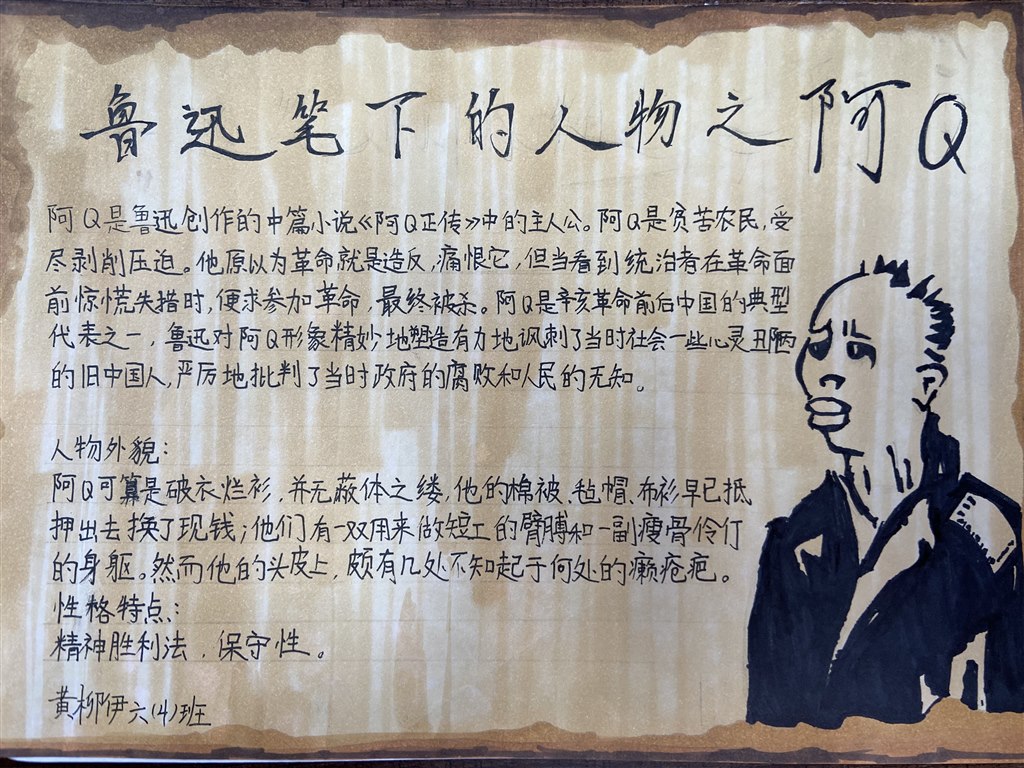 鲁迅笔下的人物之阿Q
阿Q是鲁迅创作的中篇小说《阿Q正传》中的主人公。阿Q是贫苦农民，受
尽剥削压迫。他原以为革命就是造反，痛恨它，但当看到统治者在革命面
前惊慌失措时，便求参加革命，最终被杀。阿Q是辛亥革命前后中国的典型
代表之一，鲁迅对阿Q形象精妙地塑造有力地讽刺了当时社会一些心灵丑陋
的旧中国人，严厉地批判了当时政府的腐败和人民的无知。
人物外貌：
阿Q可算是破衣烂衫，并无蔽体之缕，他的棉被、毡帽、布衫早已抵
押出去换了现钱；他们有一双用来做短工的臂膊和一副瘦骨伶仃
的身躯。然而他的头皮上，颇有几处不知起于何处的癞疮疤。
性格特点：
精神胜利法、保守性。
黄柳伊六(4)班